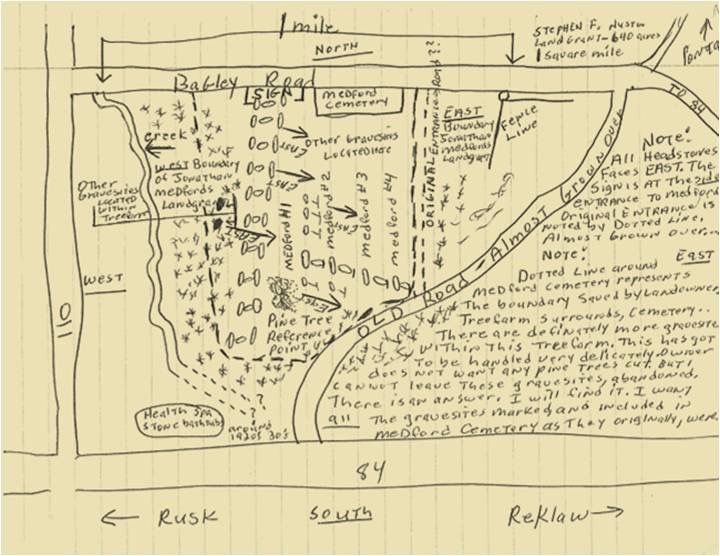 1 mile
NORTH
STEPHEN F. Austin
Land Grant - 640 acres
1 Square mile
TO 84
Bagley Road
SIGN
MEDFORD
CEMETERY
ORIGINAL ENTRANCE Road ??
EAST
Boundary
Jonathan
Medfords
Landgrant
FENCE
LINE
creek
West Boundary
of Jonathan
Medfords
Landgrant
Other
Gravesites
Located
Within
Treefarm
Other Gravesites
Located Here
East
East
East
East
East
MEDFORD #1
Medford #2
Medford #3
Medford #4
Pine Tree
Reference
Point
WEST
110
OLD Road - Almost Grown Over
NOTE:
All Headstones
Faces EAST. The
Sign is AT The side
ENTRANCE TO Medford
Original ENTRANCE is
noted by Dotted Line,
Almost Grown over...
NOTE:
EAST
Dotted Line around
Medford Cemetery represents
The boundary Saved by Landowner,
Treefarm Surrounds, Cemetery..
There are definately more gravesites
Within This Treefarm. This has got
To be handled very delicately. Owner
does not want any pine Trees cut. But I
cannot leave These gravesites, abandoned.
There is an answer. I will find it. I want
all The gravesites marked and included in
Medford Cemetery as They originally, were.
Health Spa
Stone bathtubs
around
1920s 30's
?
?
84
← RUSK
SOUTH
ReKlaw →